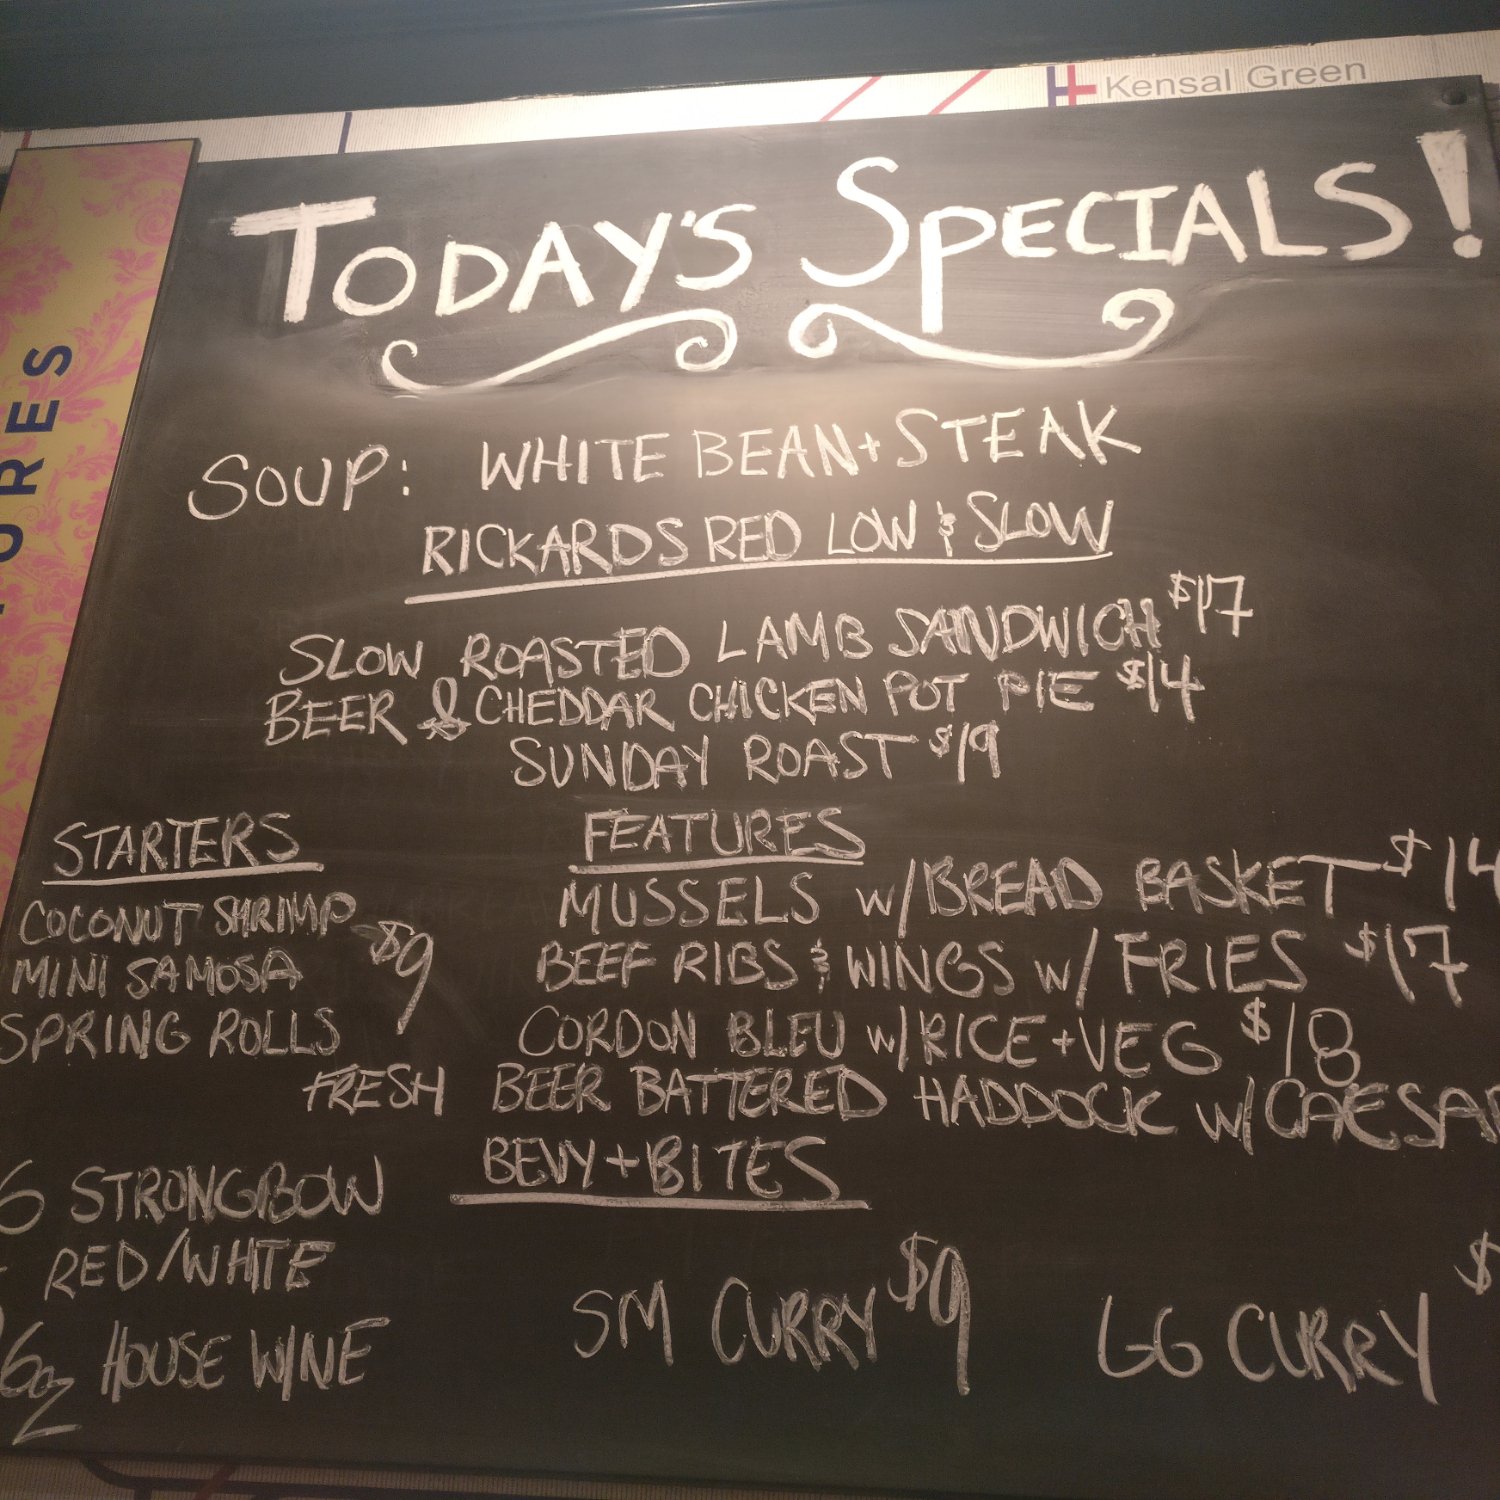 Kensal Green
TODAY'S SPECIALS!
SOUP: WHITE BEAN + STEAK
RICKARDS RED LOW & SLOW
SLOW ROASTED LAMB SANDWICH $17
BEER & CHEDDAR CHICKEN POT PIE $14
SUNDAY ROAST $19
STARTERS
COCONUT SHRIMP
MINI SAMOSA $9
SPRING ROLLS
FEATURES
MUSSELS w/BREAD BASKET $14
BEEF RIBS & WINGS w/ FRIES $17
CORDON BLEU w/RICE + VEG $18
FRESH BEER BATTERED HADDOCK w/CAESAR
BEVY + BITES
6 STRONGBOW
RED/WHITE
6oz HOUSE WINE
SM CURRY $9
LG CURRY $
URES